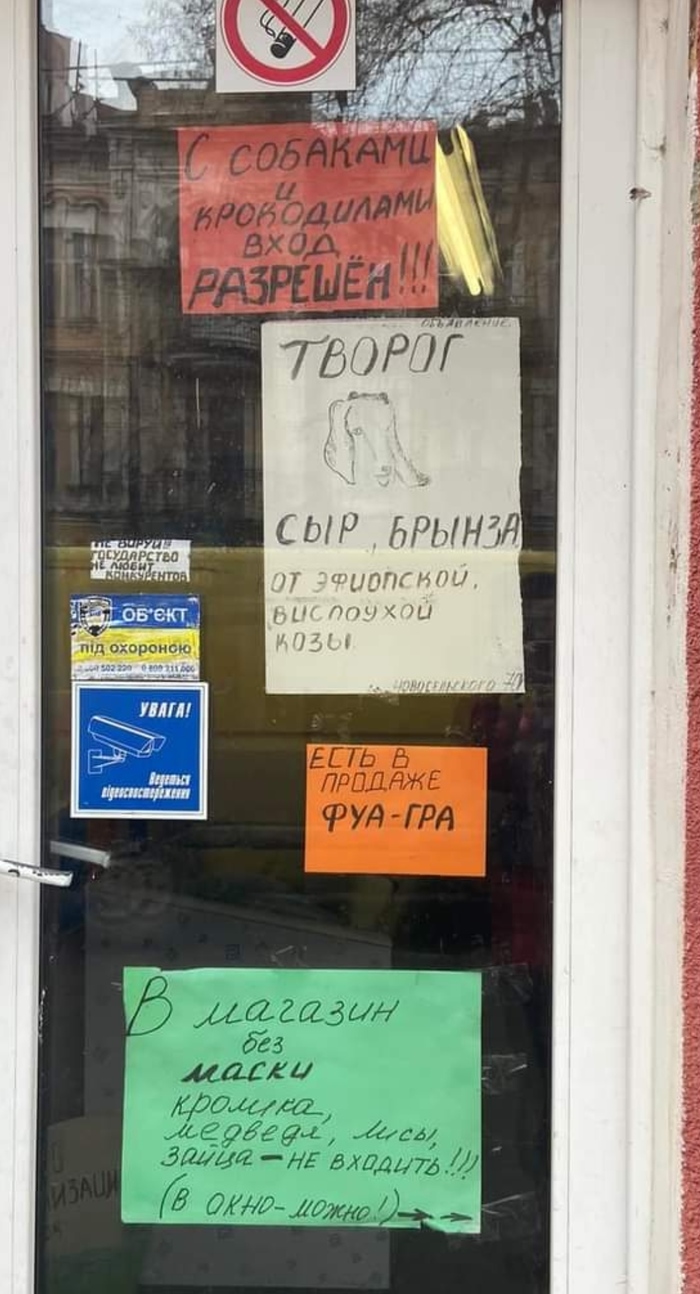 С СОБАКАМИ
И
КРОКОДИЛАМИ
ВХОД
РАЗРЕШЁН!!!
ОБЪЯВЛЕНИЕ
ТВОРОГ
СЫР, БРЫНЗА
ОТ ЭФИОПСКОЙ,
ВИСЛОУХОЙ
КОЗЫ
НОВОСЕЛЬСКОГО 70
НЕ ВОРУЙ!!
ГОСУДАРСТВО
НЕ ЛЮБИТ
КОНКУРЕНТОВ
ОБ'ЄКТ
під охороною
УВАГА!
Ведеться
відеоспостереження
ЕСТЬ В
ПРОДАЖЕ
ФУА-ГРА
В магазин
без
маски
кролика,
медведя, лисы,
зайца - НЕ ВХОДИТЬ!!!
(В ОКНО-можно!)